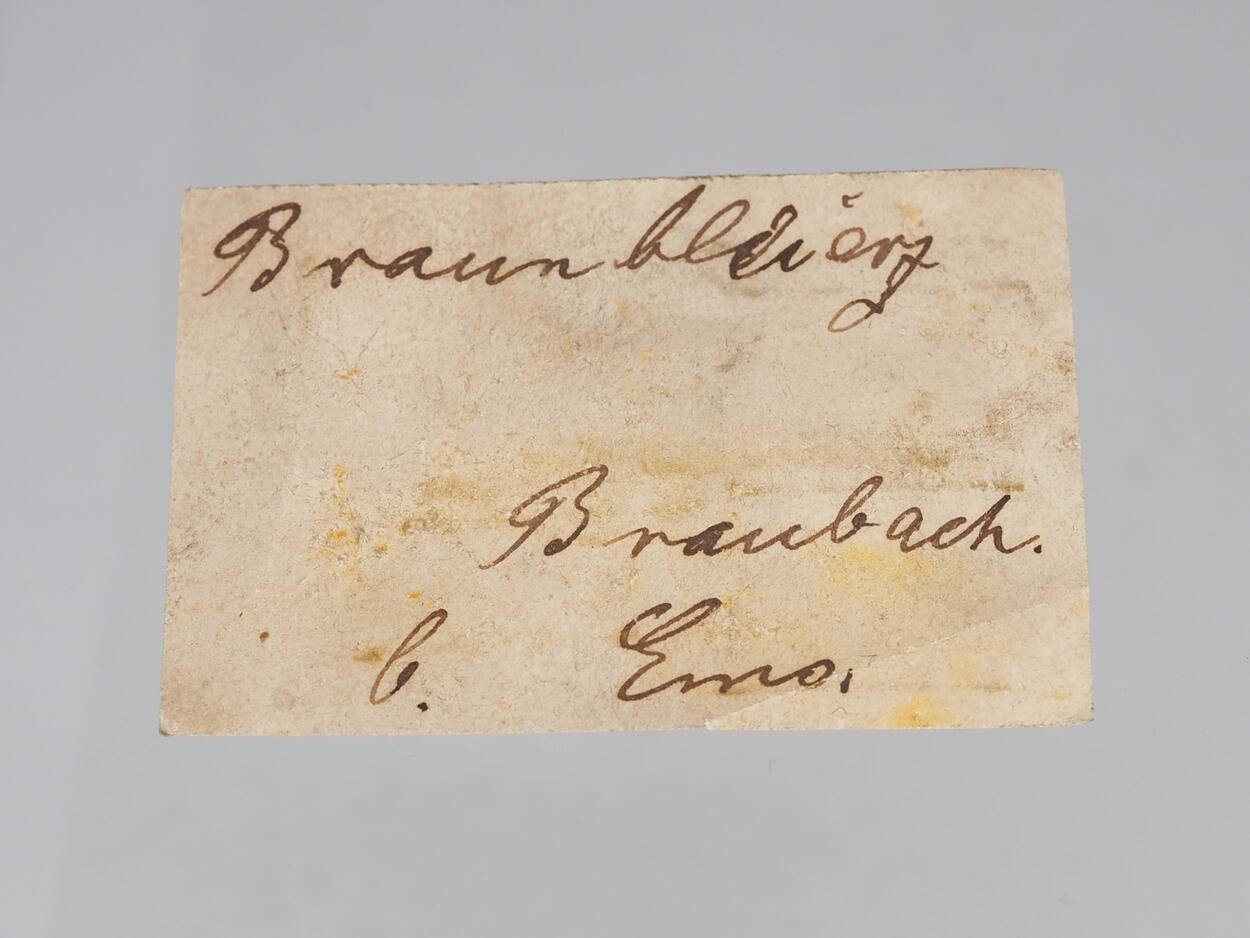 Braunbleierz
Braubach.
b. Ems.